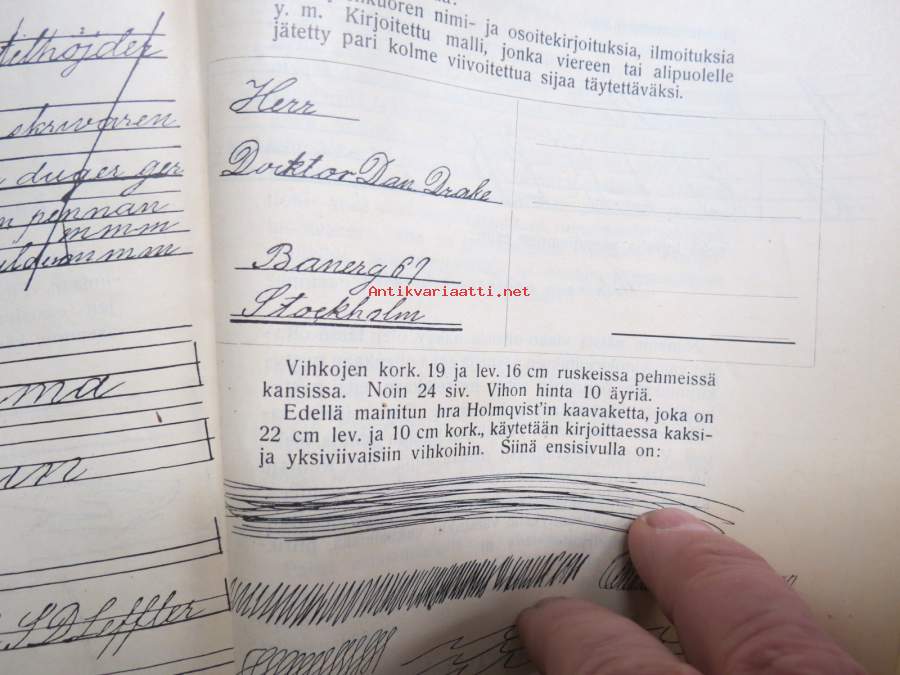 telhöjder
skrivaren
duger ger
pennan
mmm
mmm
ma
S D Leffler
nkuoren nimi- ja osoitekirjoituksia, ilmoituksia
y. m. Kirjoitettu malli, jonka viereen tai alipuolelle
jätetty pari kolme viivoitettua sijaa täytettäväksi.
Herr
Docktor Dan Drake
Banerg 69
Stockholm
Antikvariaatti.net
Vihkojen kork. 19 ja lev. 16 cm ruskeissa pehmeissä
kansissa. Noin 24 siv. Vihon hinta 10 äyriä.
Edellä mainitun hra Holmqvist'in kaavaketta, joka on
22 cm lev. ja 10 cm kork., käytetään kirjoittaessa kaksi-
ja yksiviivaisiin vihkoihin. Siinä ensisivulla on: